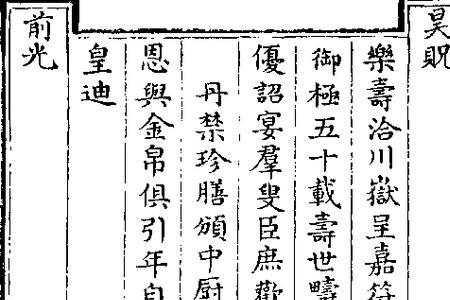 昊貺
樂壽洽川嶽呈嘉符
御極五十載壽世疇
優詔宴羣叟臣庶歡
丹禁珍膳頒中厨
恩與金帛俱引年自
皇迪
前光